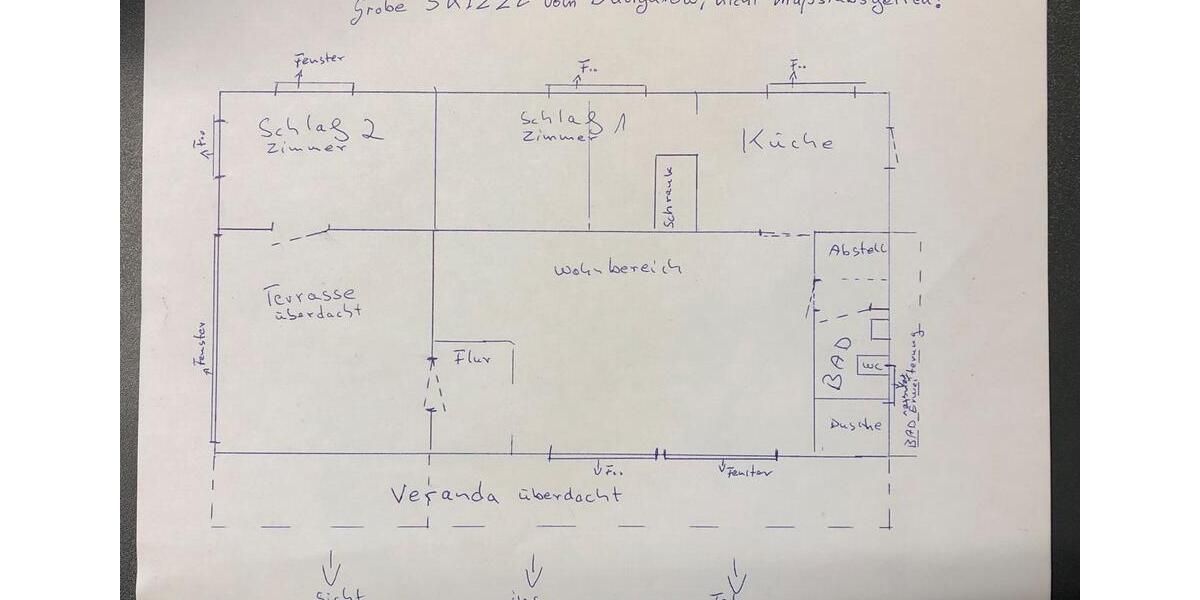 Grobe SKIZZE vom Bungalow, nicht maßstabsgetreu!
Fenster
F..
F..
Schlaf 2
Zimmer
Schlaf 1
Zimmer
Küche
F..
Schrank
Abstell
Wohnbereich
Terrasse
überdacht
Fenster
Flur
BAD
WC
Fenster
BAD Erweiterung
Dusche
F..
Fenster
Veranda überdacht
Sicht ins Tal